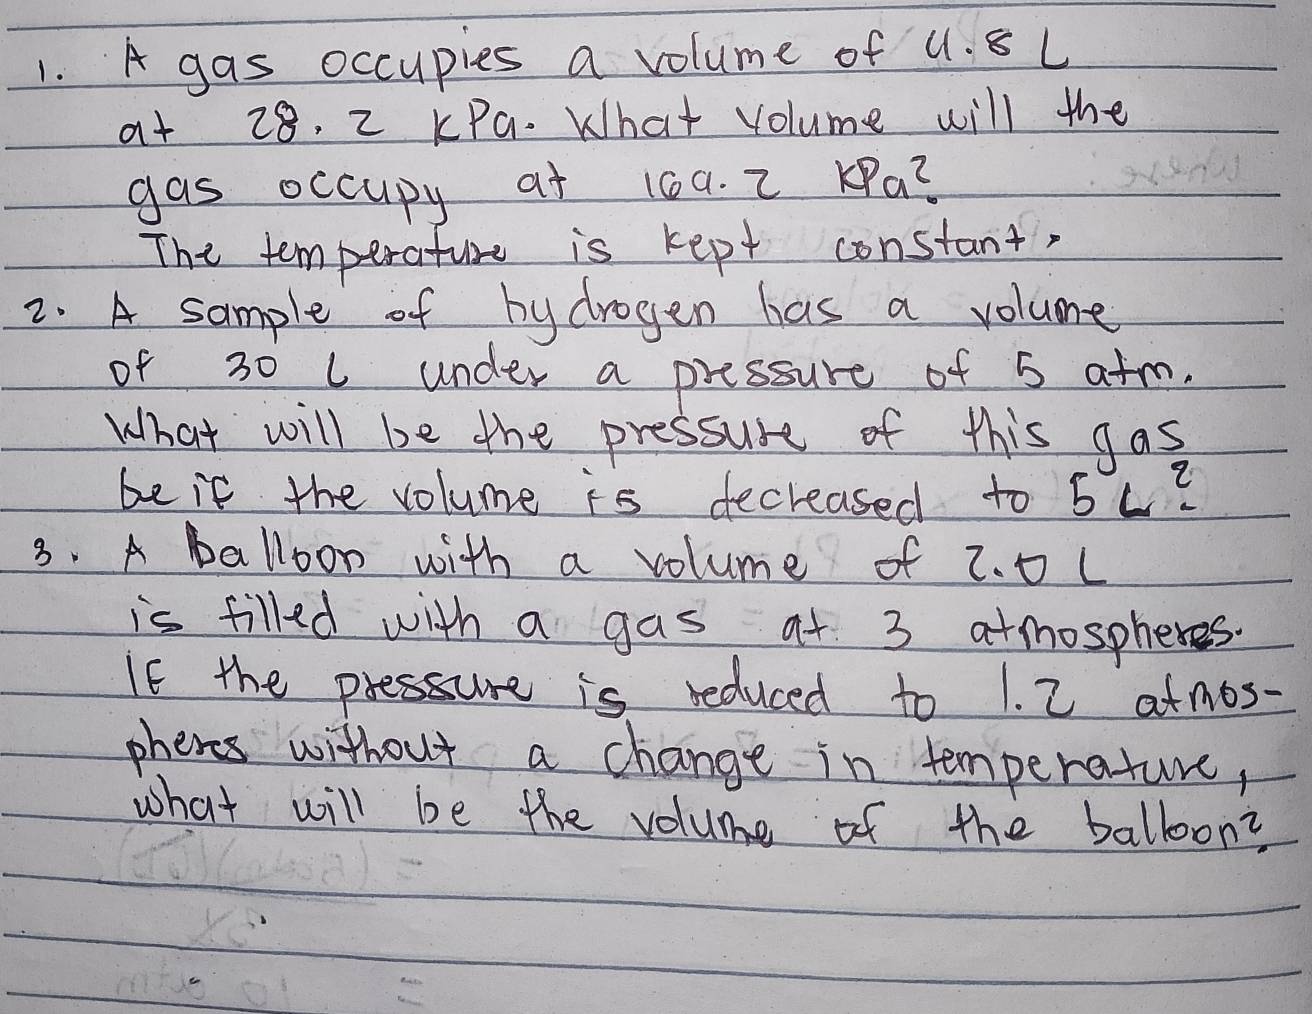 1. A gas occupies a volume of 4.8 L
at 28.2 kPa. What volume will the
gas occupy at 169.2 kPa?
The temperature is kept constant.
2. A sample of hydrogen has a volume
of 30 L under a pressure of 5 atm.
What will be the pressure of this gas
be if the volume is decreased to 5 L?
3. A balloon with a volume of 2.0 L
is filled with a gas at 3 atmospheres.
If the pressure is reduced to 1.2 atmos-
pheres without a change in temperature,
what will be the volume of the balloon?